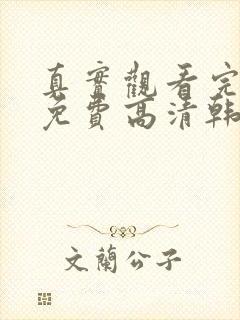 真實觀看完
免費高清韓
文蘭公子